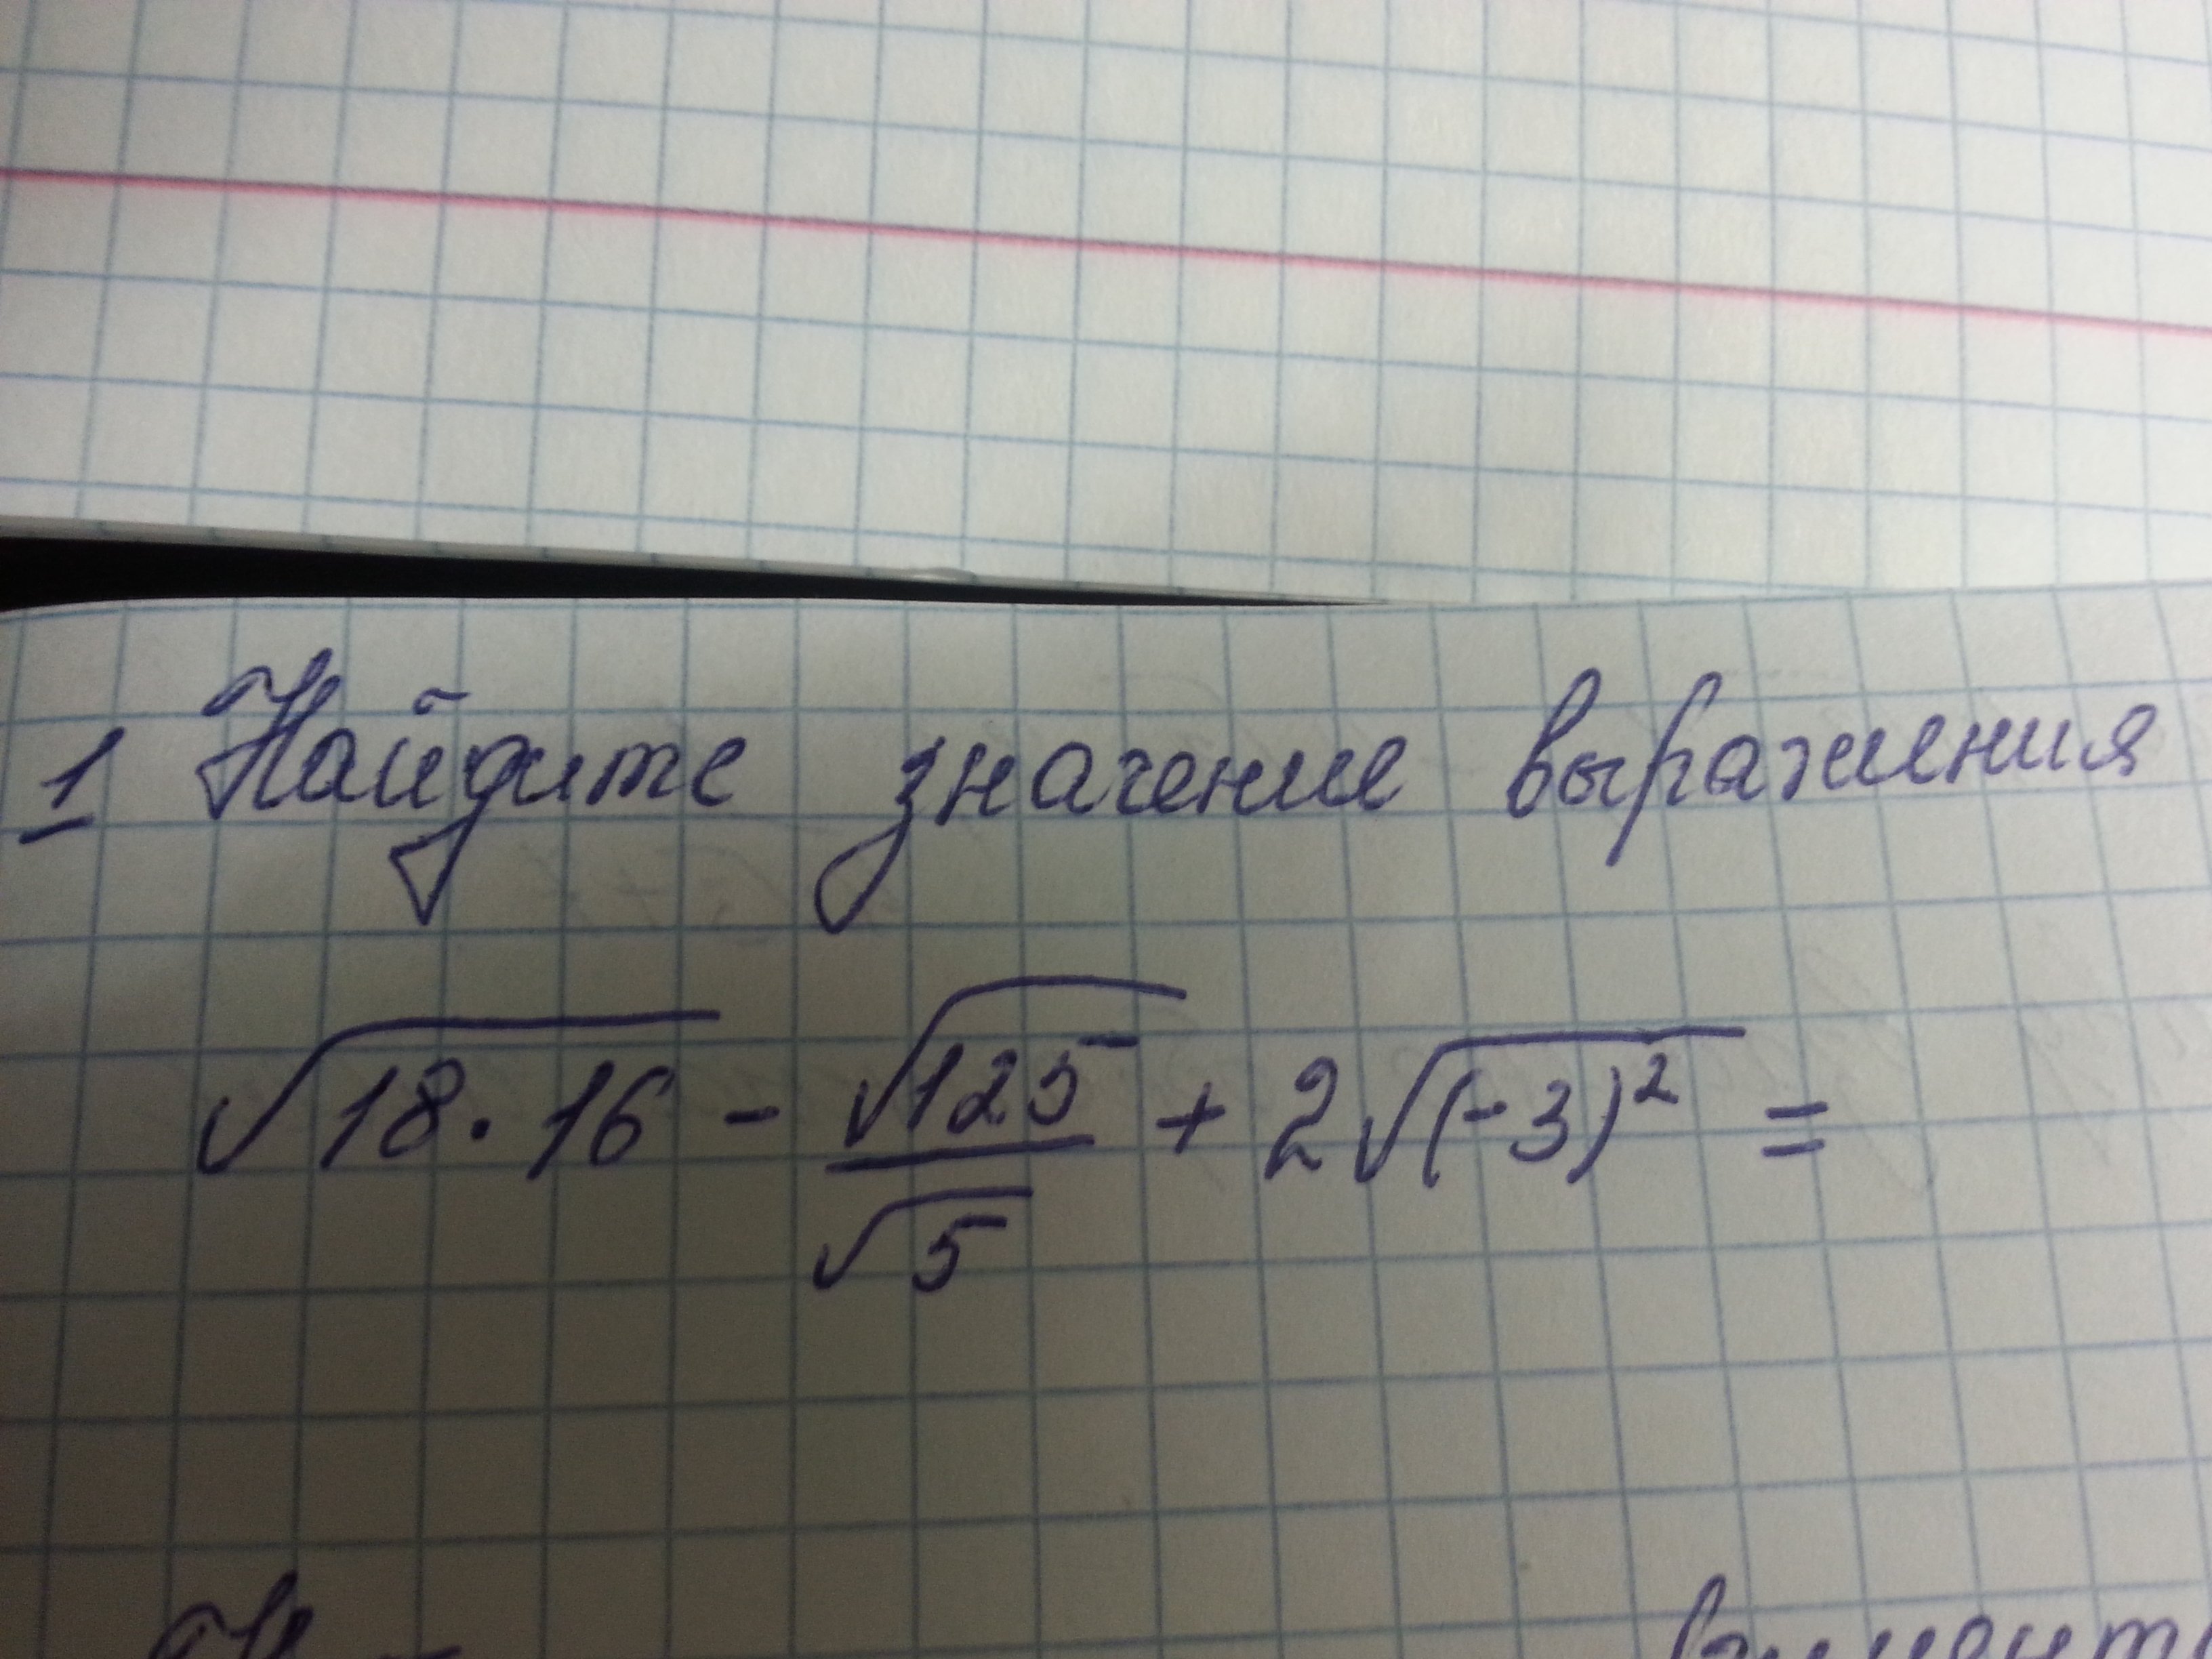 1 Найдите значение выражения
√(18·16) - √125/√5 + 2√((-3)²) =